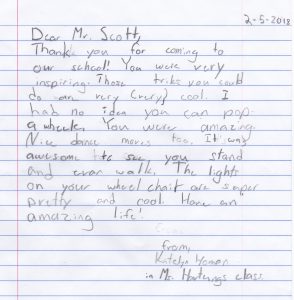 2-5-2018
Dear Mr. Scott,
Thank you for coming to
our school! You were very
inspiring. Those triks you could
do are very (very) cool. I
had no idea you can pop
a wheely. You were amazing.
Nice dance moves too. It was
awesome to see you stand
and even walk. The lights
on your wheel chair are super
pretty and cool. Have an
amazing life!
from,
Katelyn
in Ms. Hastings class